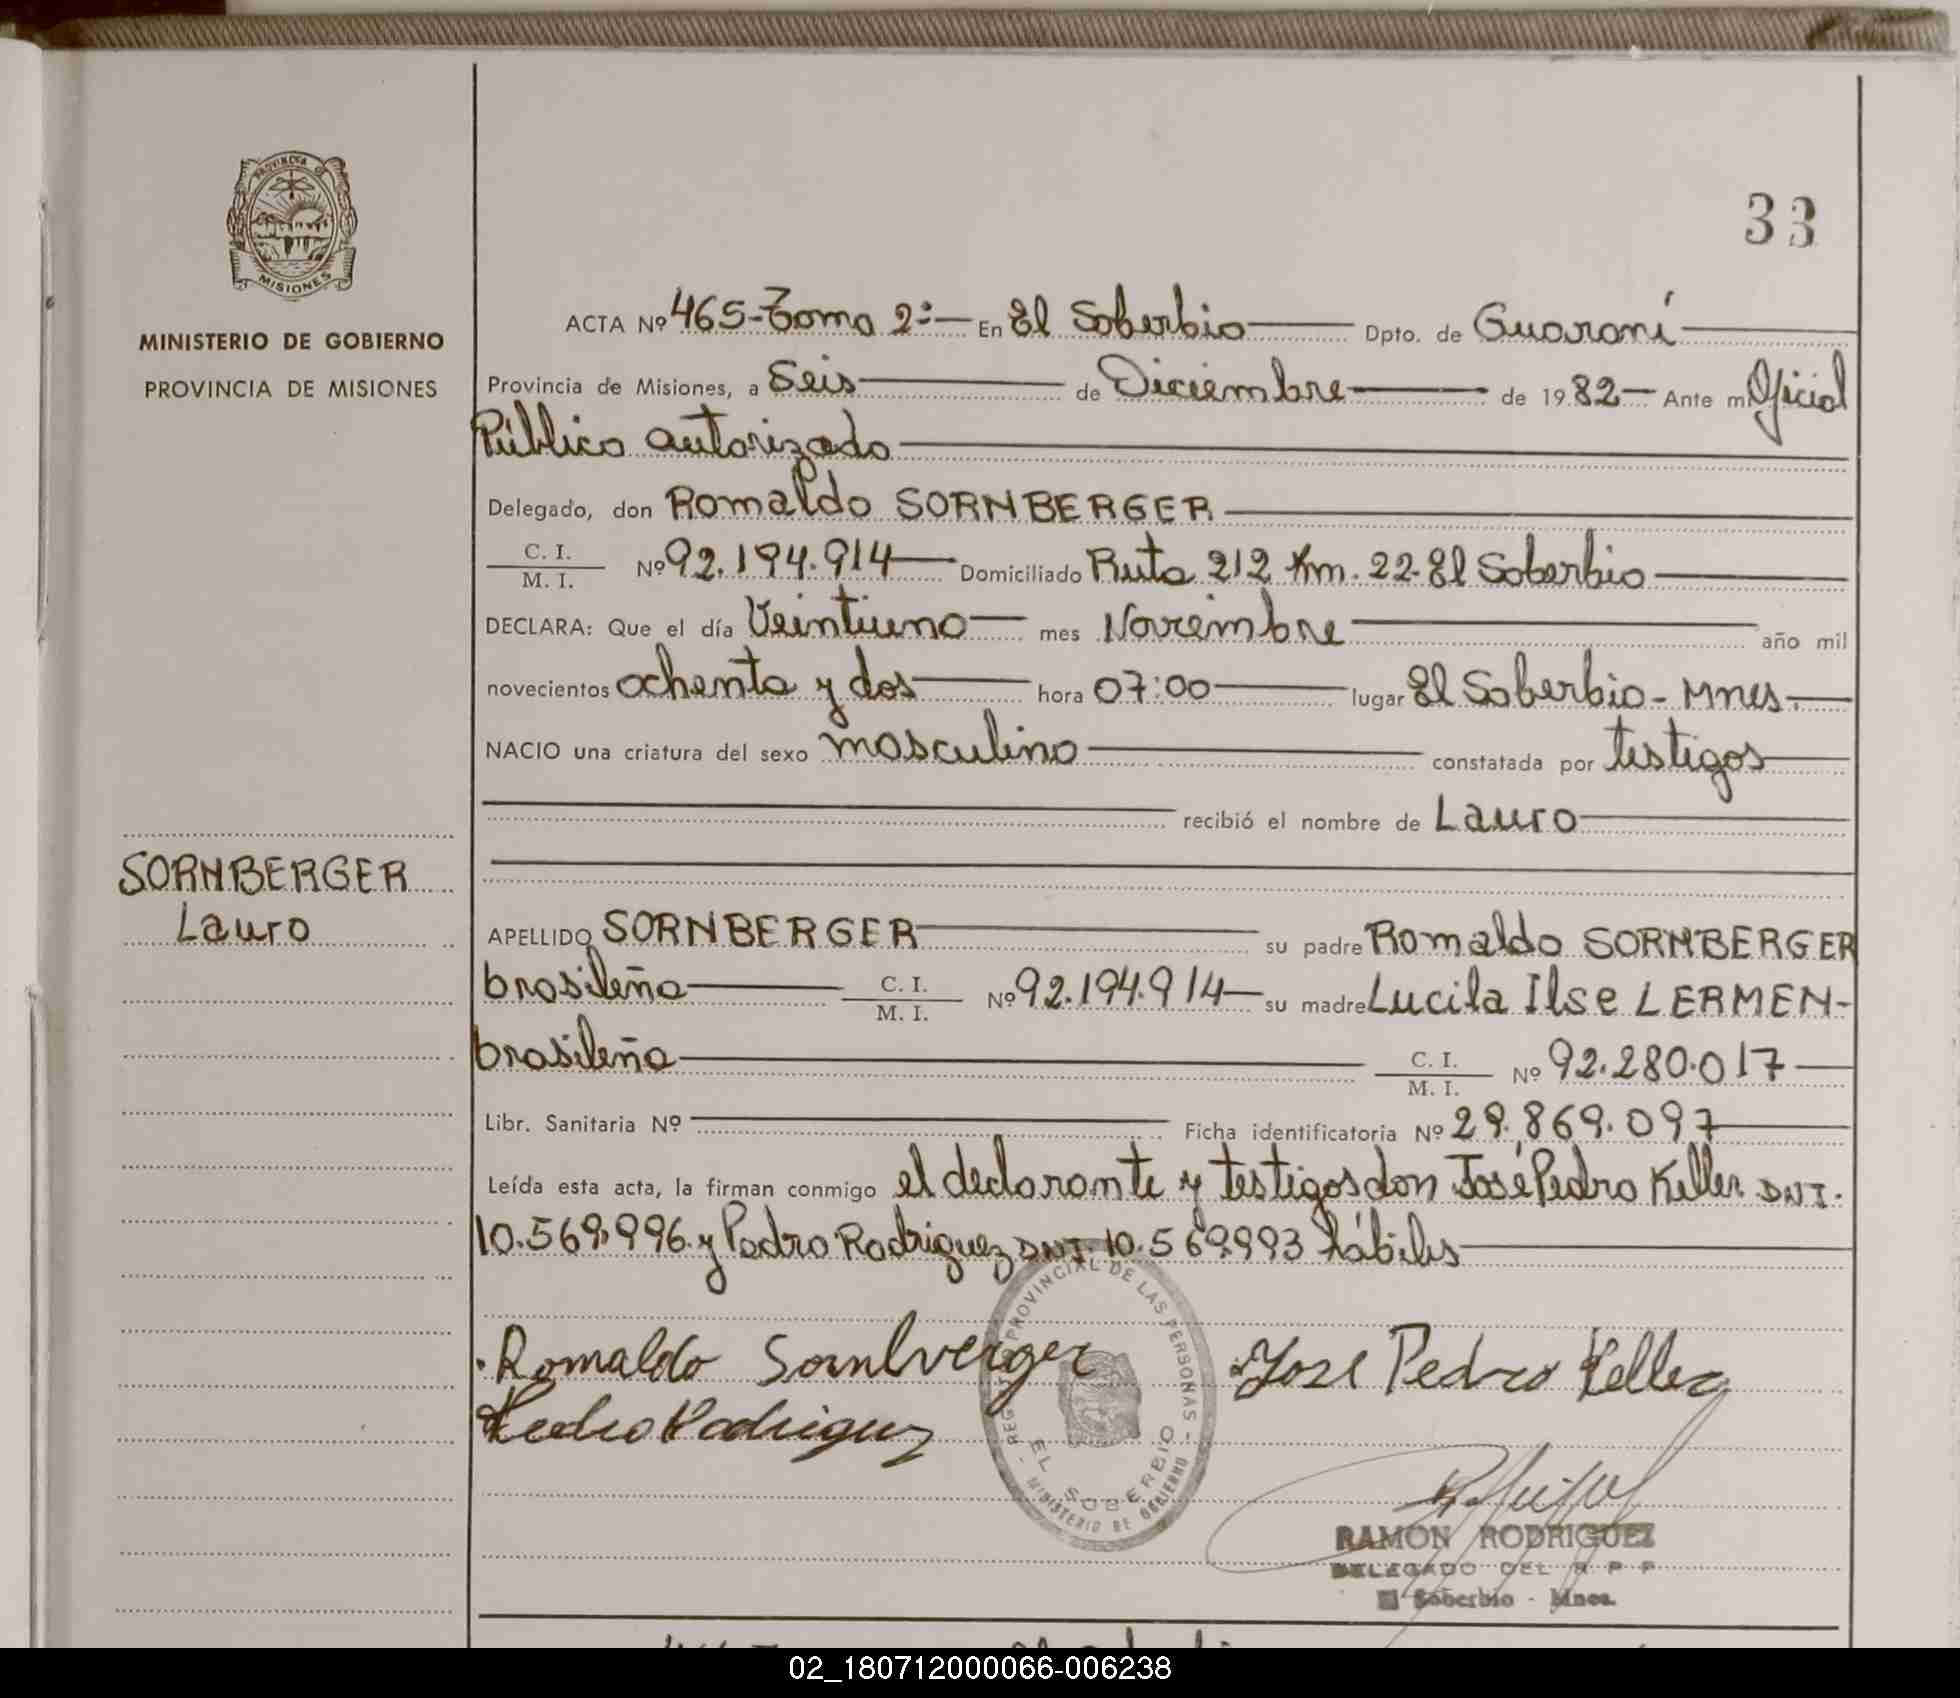 33
PROVINCIA DE
MISIONES
MINISTERIO DE GOBIERNO
PROVINCIA DE MISIONES
ACTA Nº 465-Tomo 2º:— En El Soberbio Dpto. de Guaraní
Provincia de Misiones, a Seis de Diciembre de 1982 — Ante mí Oficial
Público autorizado
Delegado, don Romaldo SORNBERGER
C. I. / M. I. Nº 92.194.914 Domiciliado Ruta 212 Km. 22-El Soberbio
DECLARA: Que el día Veintiuno mes Noviembre año mil
novecientos ochenta y dos hora 07:00 lugar El Soberbio - Mnes.
NACIO una criatura del sexo masculino constatada por testigos
recibió el nombre de Lauro
SORNBERGER
Lauro
APELLIDO SORNBERGER su padre Romaldo SORNBERGER
brasileña C. I. / M. I. Nº 92.194.914 su madre Lucila Ilse LERMEN-
brasileña C. I. / M. I. Nº 92.280.017
Libr. Sanitaria Nº Ficha identificatoria Nº 29.869.097
Leída esta acta, la firman conmigo el declarante y testigos don José Pedro Keller DNI.
10.569.996 y Pedro Rodriguez DNI. 10.569.993 hábiles
Romaldo Sornlverger José Pedro Keller
Pedro Rodriguez
REG. PROVINCIAL DE LAS PERSONAS -
EL SOBERBIO
- MINISTERIO DE GOBIERNO
RAMON RODRIGUEZ
DELEGADO DEL R P P
El Soberbio - Mnes.
02_180712000066-006238